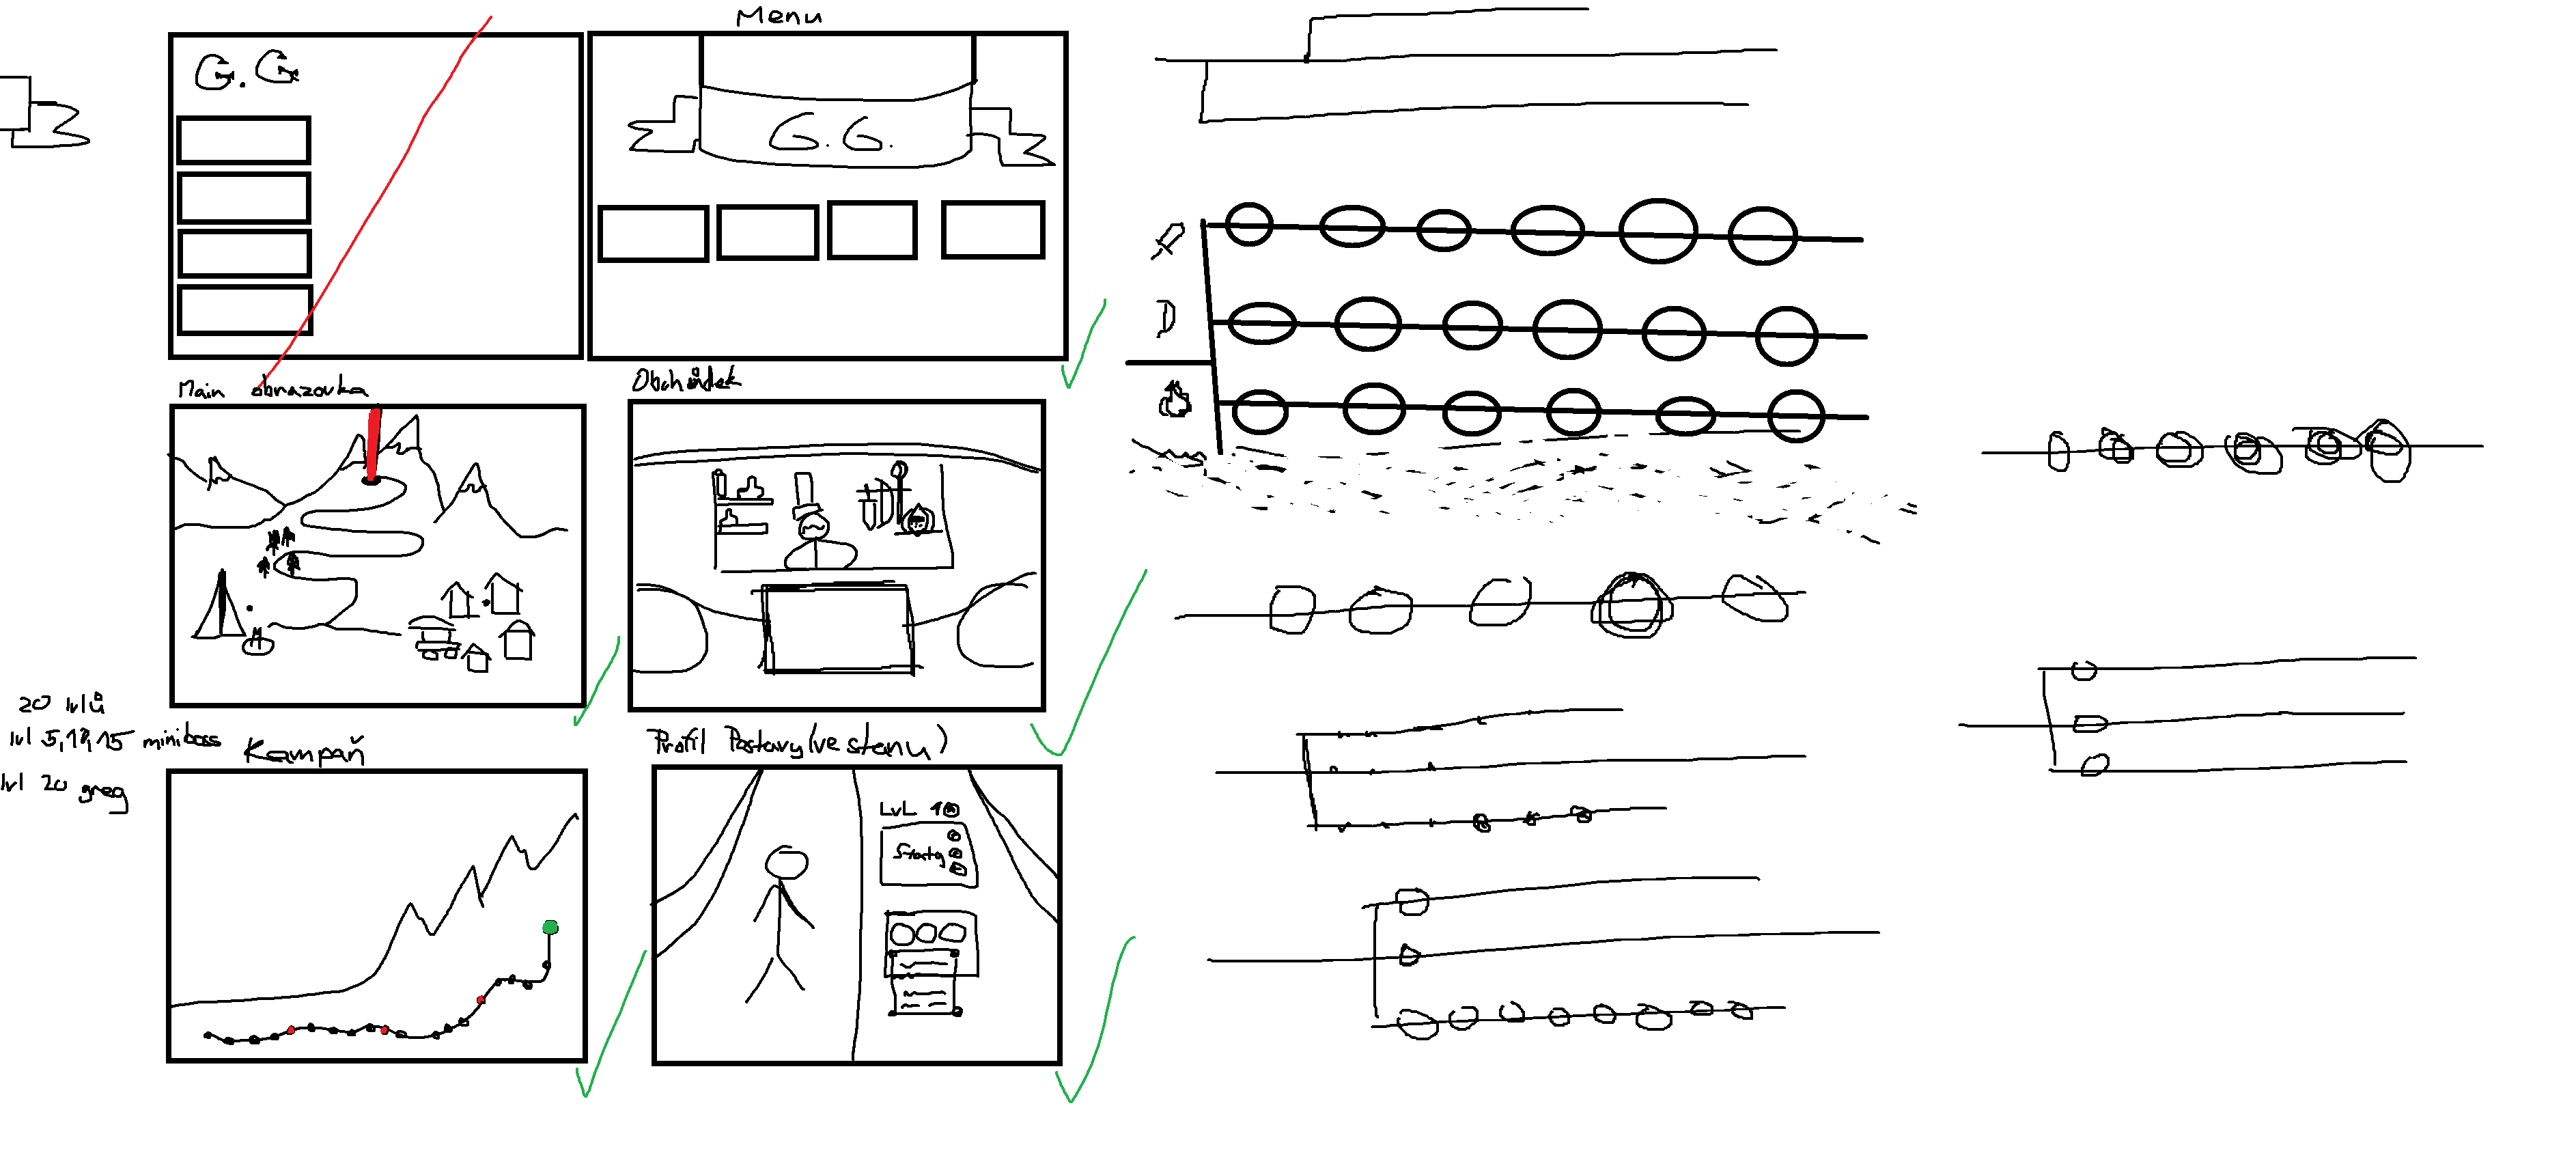 Menu
G.G
G.G.
Main obrazovka
Obchůdek
20 lvlů
lvl 5,10,15 miniboss
lvl 20 greg
Kampaň
Profil Postavy (ve stanu)
LvL 10
Staty